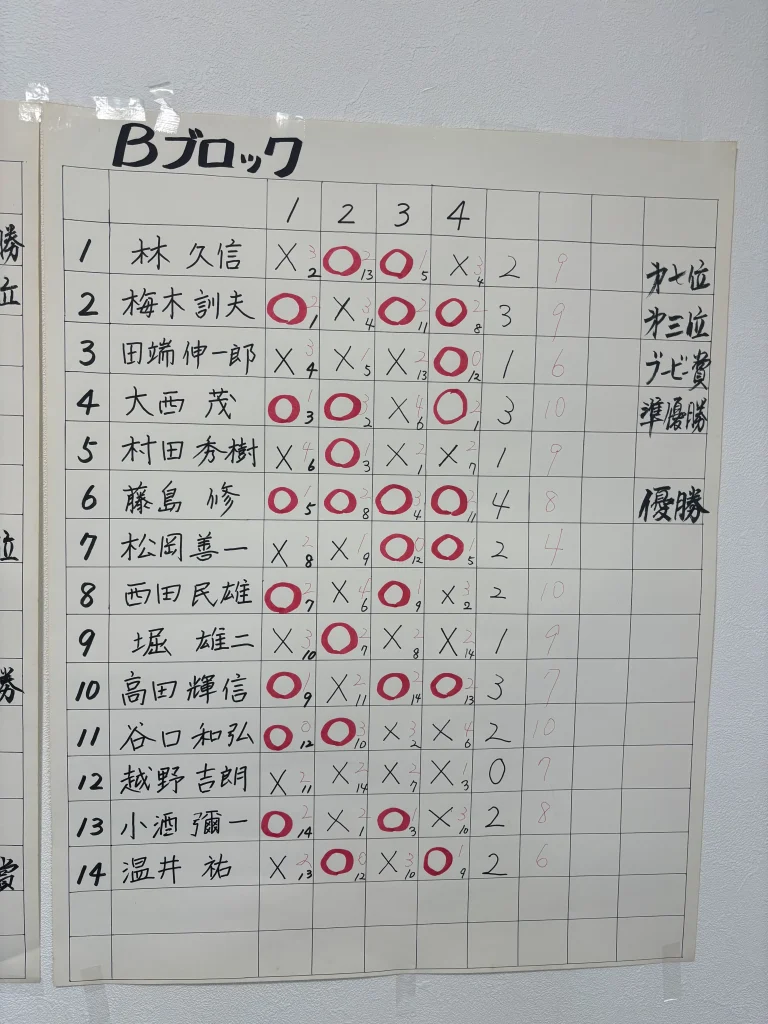 Bブロック
1 2 3 4
1 林 久信 × 3 2 ○ 2 13 ○ 1 5 × 3 4 2 9 第七位
2 梅木 訓夫 ○ 2 1 × 3 4 ○ 2 11 ○ 2 8 3 9 第三位
3 田端 伸一郎 × 3 4 × 1 5 × 2 13 ○ 0 12 1 6 ブービー賞
4 大西 茂 ○ 1 3 ○ 3 2 × 4 6 ○ 2 1 3 10 準優勝
5 村田 秀樹 × 4 6 ○ 1 3 × 2 1 × 2 7 1 9
6 藤島 修 ○ 1 5 ○ 2 8 ○ 3 4 ○ 2 11 4 8 優勝
7 松岡 善一 × 2 8 × 1 9 ○ 0 12 ○ 1 5 2 4
8 西田 民雄 ○ 2 7 × 4 6 ○ 1 9 × 3 2 2 10
9 堀 雄二 × 3 10 ○ 2 7 × 2 8 × 2 14 1 9
10 高田 輝信 ○ 1 9 × 2 11 ○ 2 14 ○ 2 13 3 7
11 谷口 和弘 ○ 0 12 ○ 3 10 × 3 2 × 4 6 2 10
12 越野 吉朗 × 2 11 × 2 14 × 2 7 × 1 3 0 7
13 小酒 彌一 ○ 2 14 × 2 1 ○ 1 3 × 3 10 2 8
14 温井 祐 × 2 13 ○ 0 12 × 3 10 ○ 1 9 2 6
勝
位
位
勝
賞